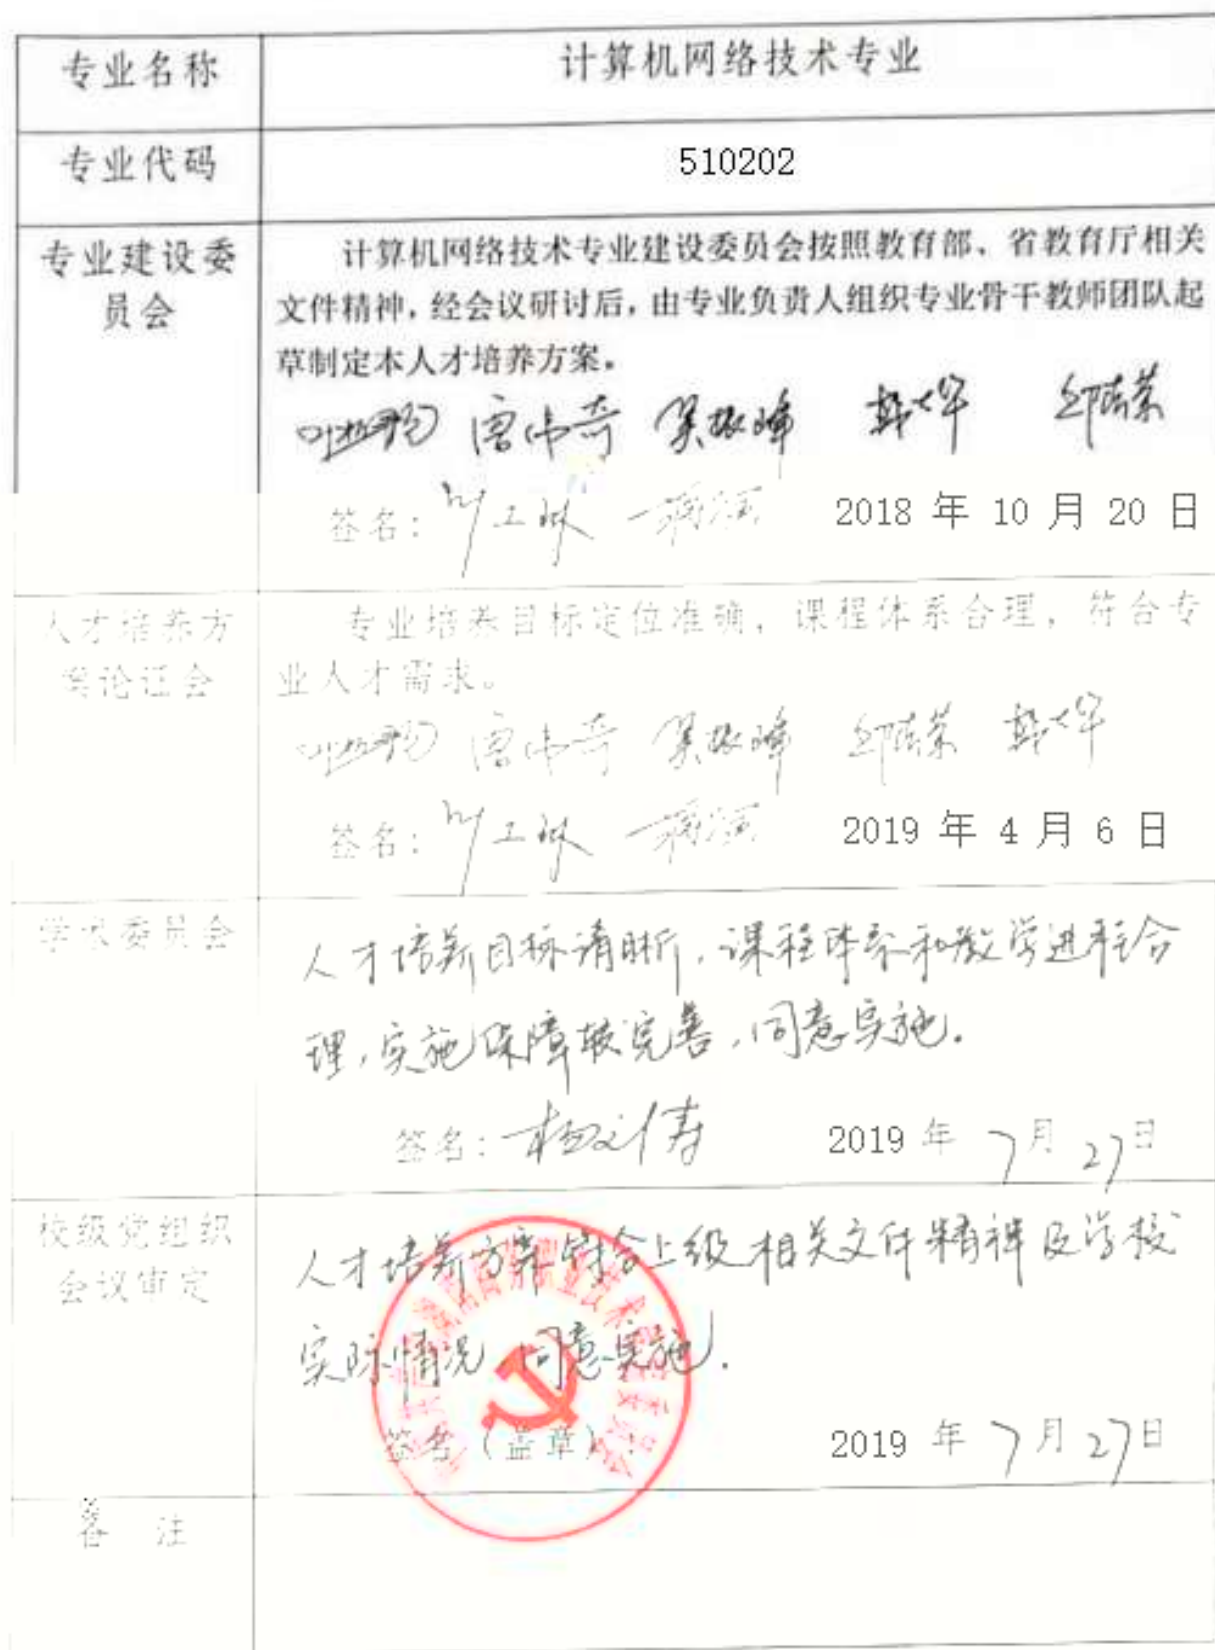 专业名称
计算机网络技术专业
专业代码
510202
专业建设委
员会
计算机网络技术专业建设委员会按照教育部、省教育厅相关
文件精神，经会议研讨后，由专业负责人组织专业骨干教师团队起
草制定本人才培养方案。
唐伟奇 吴振峰
签名： 2018 年 10 月 20 日
人才培养方
案论证会
专业培养目标定位准确，课程体系合理，符合专
业人才需求。
唐伟奇 吴振峰
签名： 2019 年 4 月 6 日
学术委员会
人才培养目标清晰，课程体系和教学进程合
理，实施保障较完善，同意实施。
签名： 2019 年 7 月 27 日
校级党组织
会议审定
人才培养方案符合上级相关文件精神及学校
实际情况，同意实施。
签名（盖章）： 2019 年 7 月 27 日
备 注